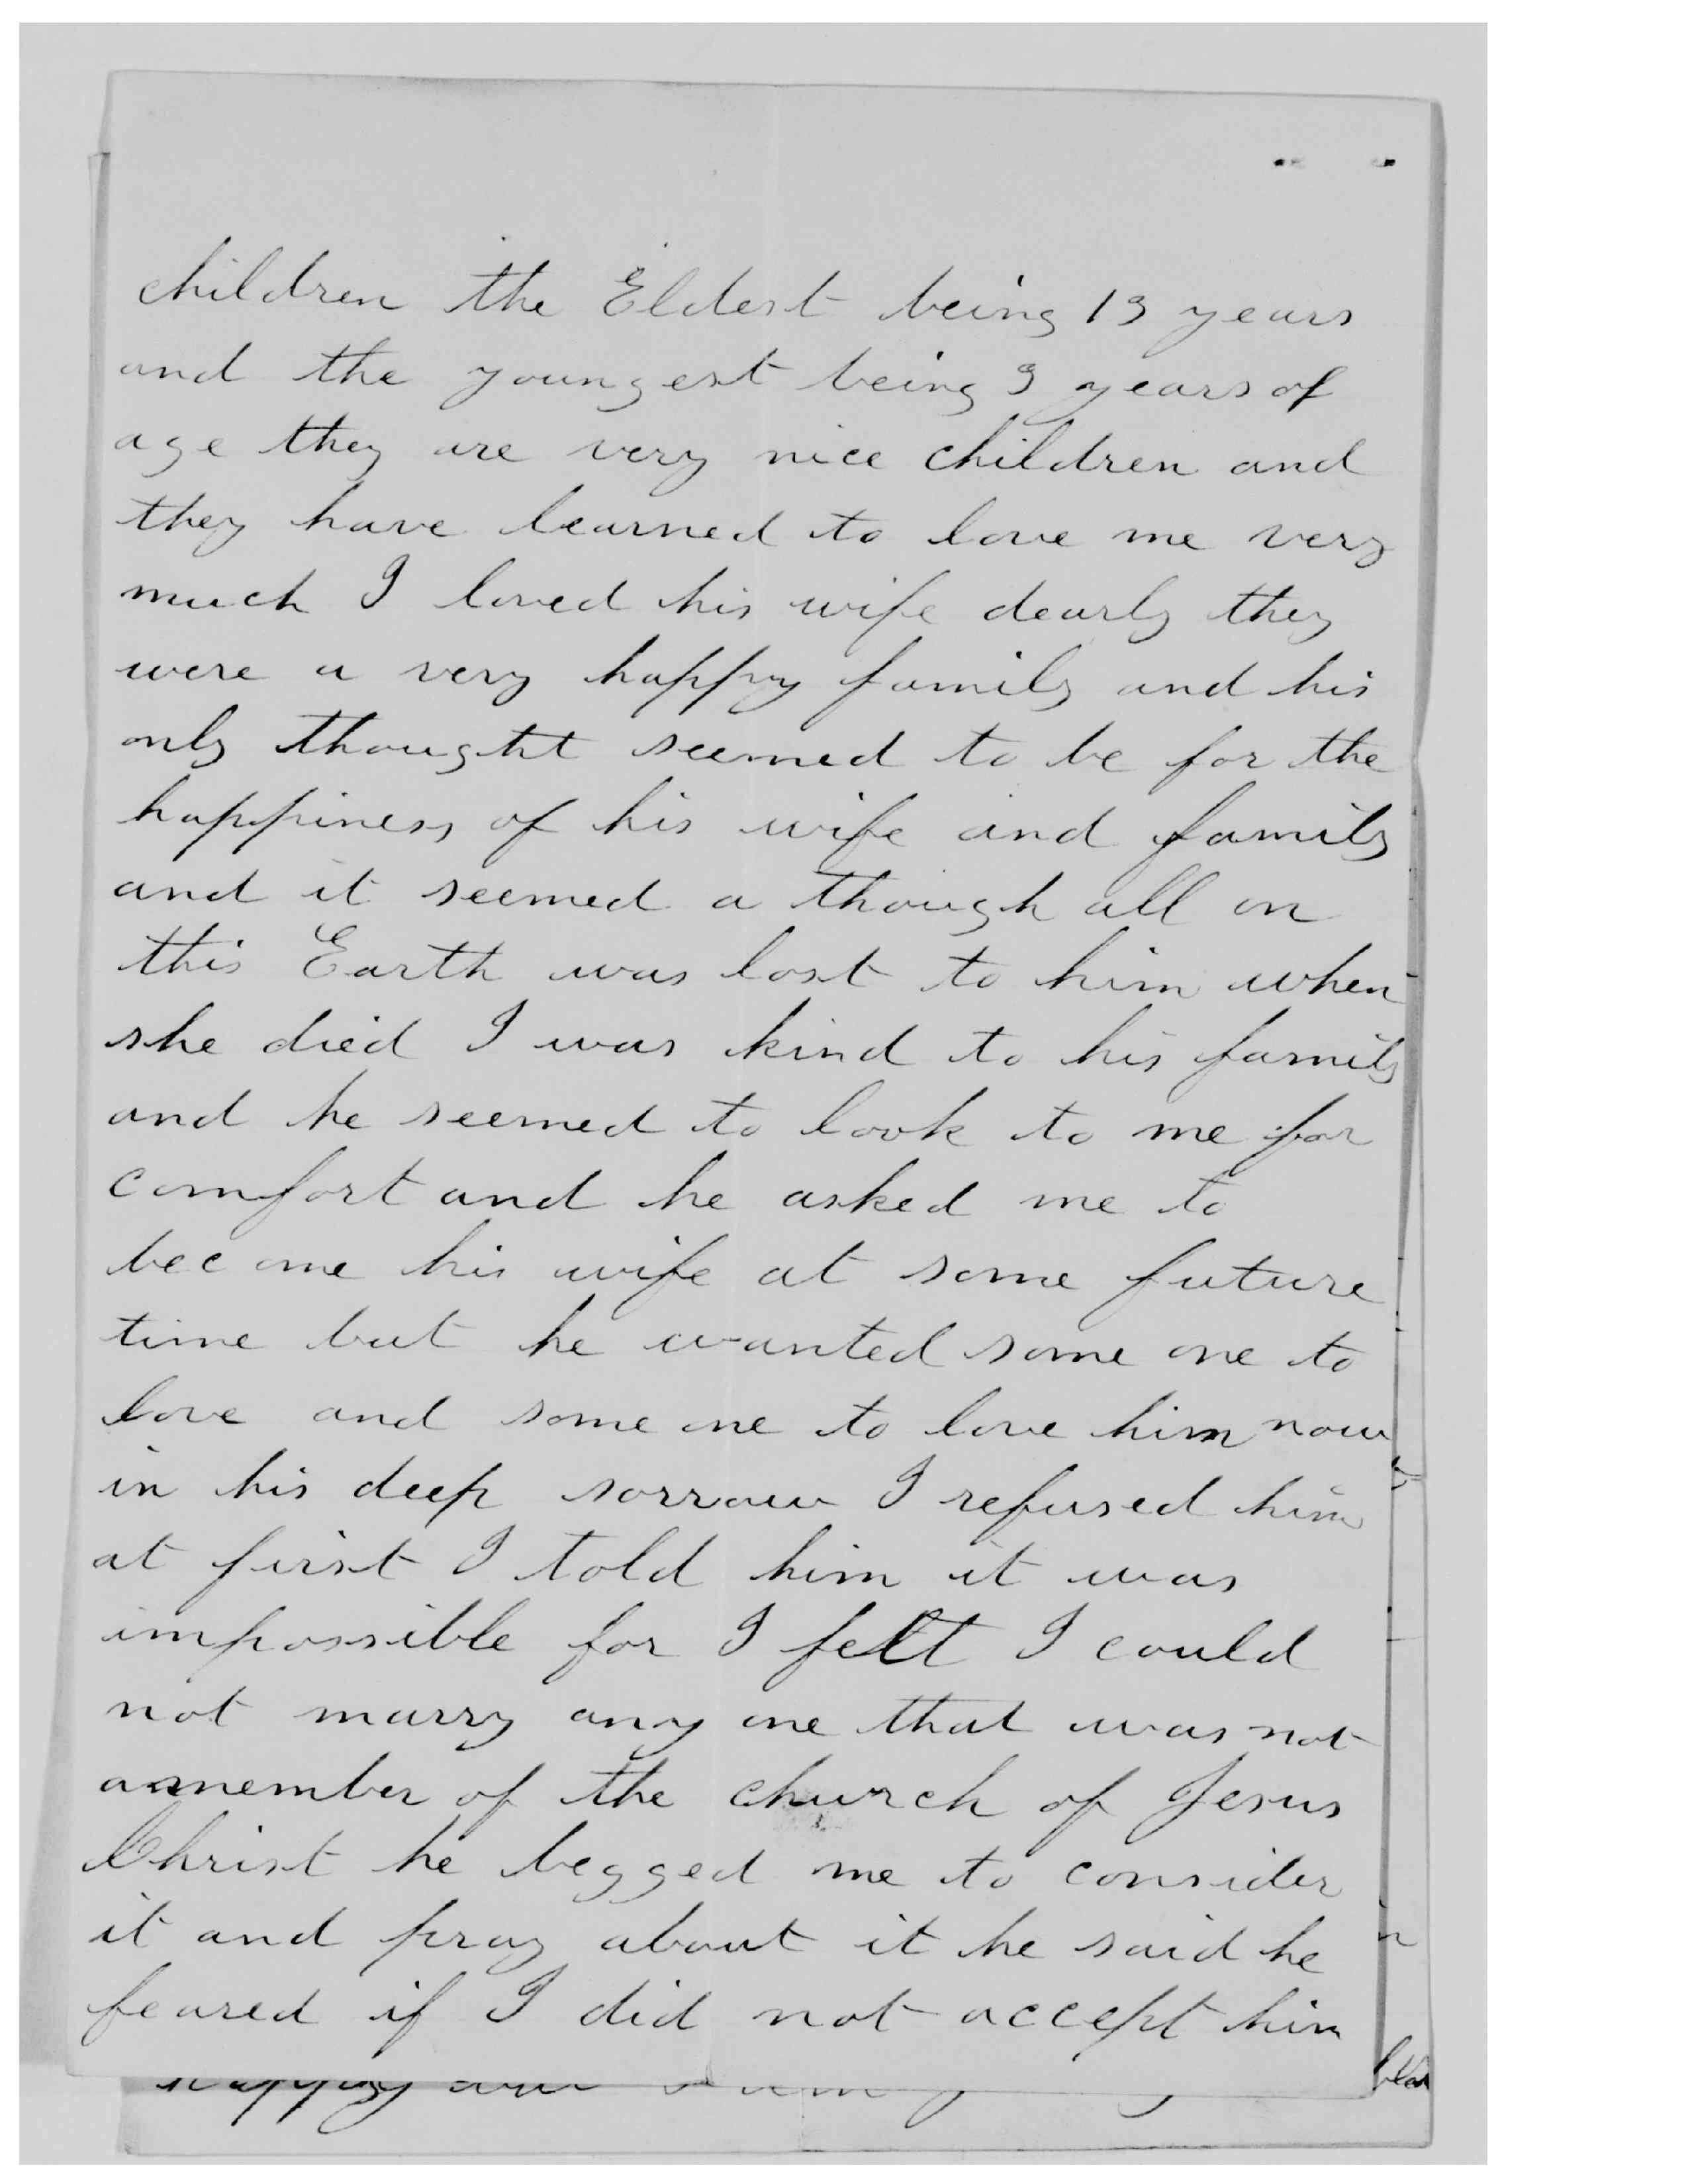 children the Eldest being 13 years
and the youngest being 3 years of
age they are very nice children and
they have learned to love me very
much I loved his wife dearly they
were a very happy family and his
only thought seemed to be for the
happiness of his wife and family
and it seemed a though all on
this Earth was lost to him when
she died I was kind to his family
and he seemed to look to me for
comfort and he asked me to
become his wife at some future
time but he wanted some one to
love and some one to love him now
in his deep sorrow I refused him
at first I told him it was
impossible for I felt I could
not marry any one that was not
a member of the church of Jesus
Christ he begged me to consider
it and pray about it he said he
feared if I did not accept him